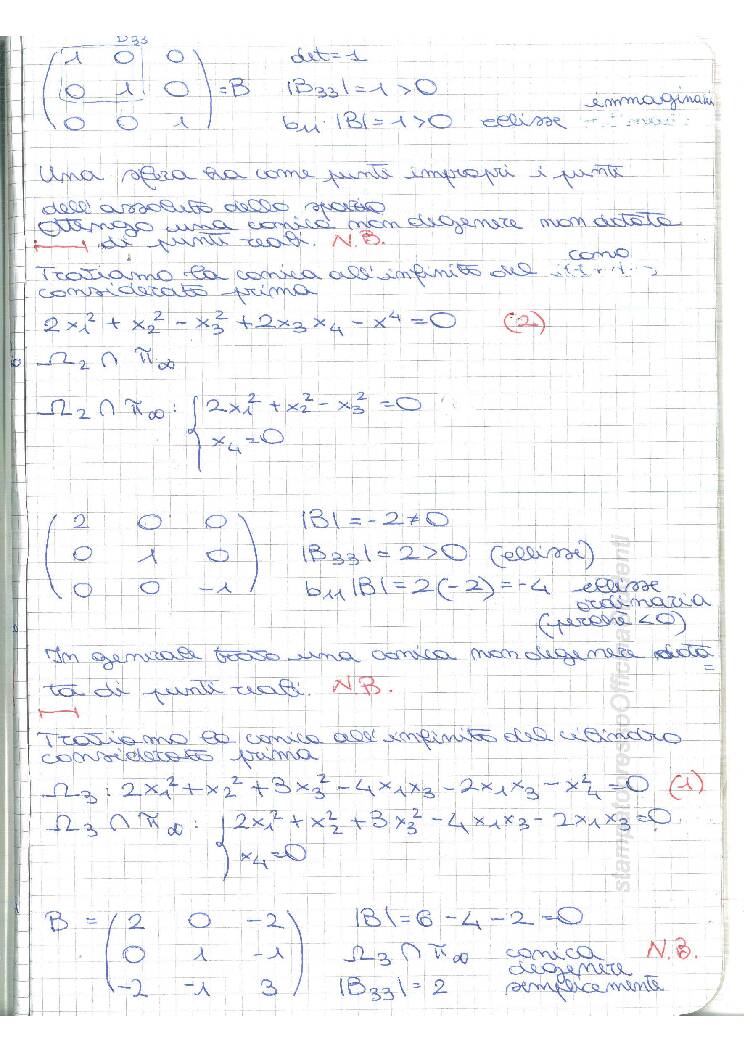 B33
1 0 0 det = 1
0 1 0 = B |B33| = 1 > 0 immaginari
0 0 1 b11 · |B| = 1 > 0 ellisse
Una sfera ha come punti impropri i punti
dell'assoluto dello spazio
Ottengo una conica non degenere non dotata
di punti reali. N.B.
Troviamo la conica all'infinito del cono
considerato prima
2x1² + x2² - x3² + 2x3x4 - x⁴ = 0 (2)
Ω2 ∩ π∞
Ω2 ∩ π∞ : { 2x1² + x2² - x3² = 0
x4 = 0
2 0 0 |B| = -2 ≠ 0
0 1 0 |B33| = 2 > 0 (ellisse)
0 0 -1 b11 |B| = 2(-2) = -4 ellisse
ordinaria
(perchè < 0)
In generale trovo una conica non degenere dota
ta di punti reali. N.B.
Troviamo la conica all'infinito del cilindro
considerato prima
Ω3 : 2x1² + x2² + 3x3² - 4x1x3 - 2x1x3 - x4² = 0 (1)
Ω3 ∩ π∞ : { 2x1² + x2² + 3x3² - 4x1x3 - 2x1x3 = 0
x4 = 0
B = ( 2 0 -2 ) |B| = 6 - 4 - 2 = 0
0 1 -1 Ω3 ∩ π∞ conica N.B.
degenere
-2 -1 3 |B33| = 2 semplicemente